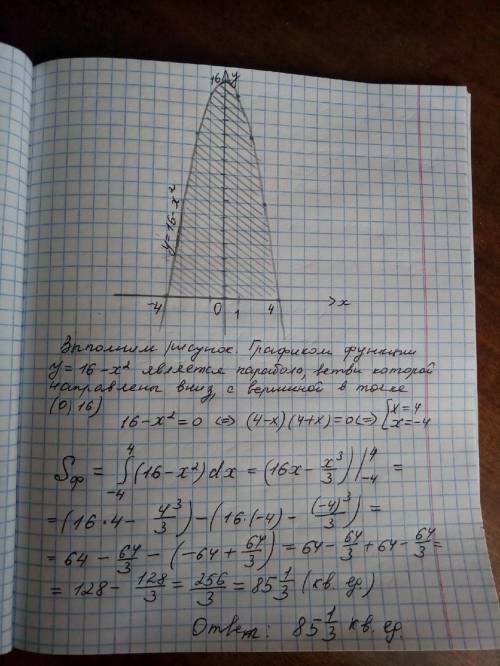 16 y
y=16-x²
-4 0 1 4 x
Выполним рисунок. Графиком функции
y=16-x² является парабола, ветви которой
направлены вниз, с вершиной в точке
(0; 16)
16-x²=0 ⇔ (4-x)(4+x)=0 ⇔ [x=4
x=-4
Sф = ∫₋₄⁴ (16-x²)dx = (16x - x³/3)|₋₄⁴ =
= (16·4 - 4³/3) - (16·(-4) - (-4)³/3) =
= 64 - 64/3 - (-64 + 64/3) = 64 - 64/3 + 64 - 64/3 =
= 128 - 128/3 = 256/3 = 85 1/3 (кв. ед.)
Ответ: 85 1/3 кв. ед.